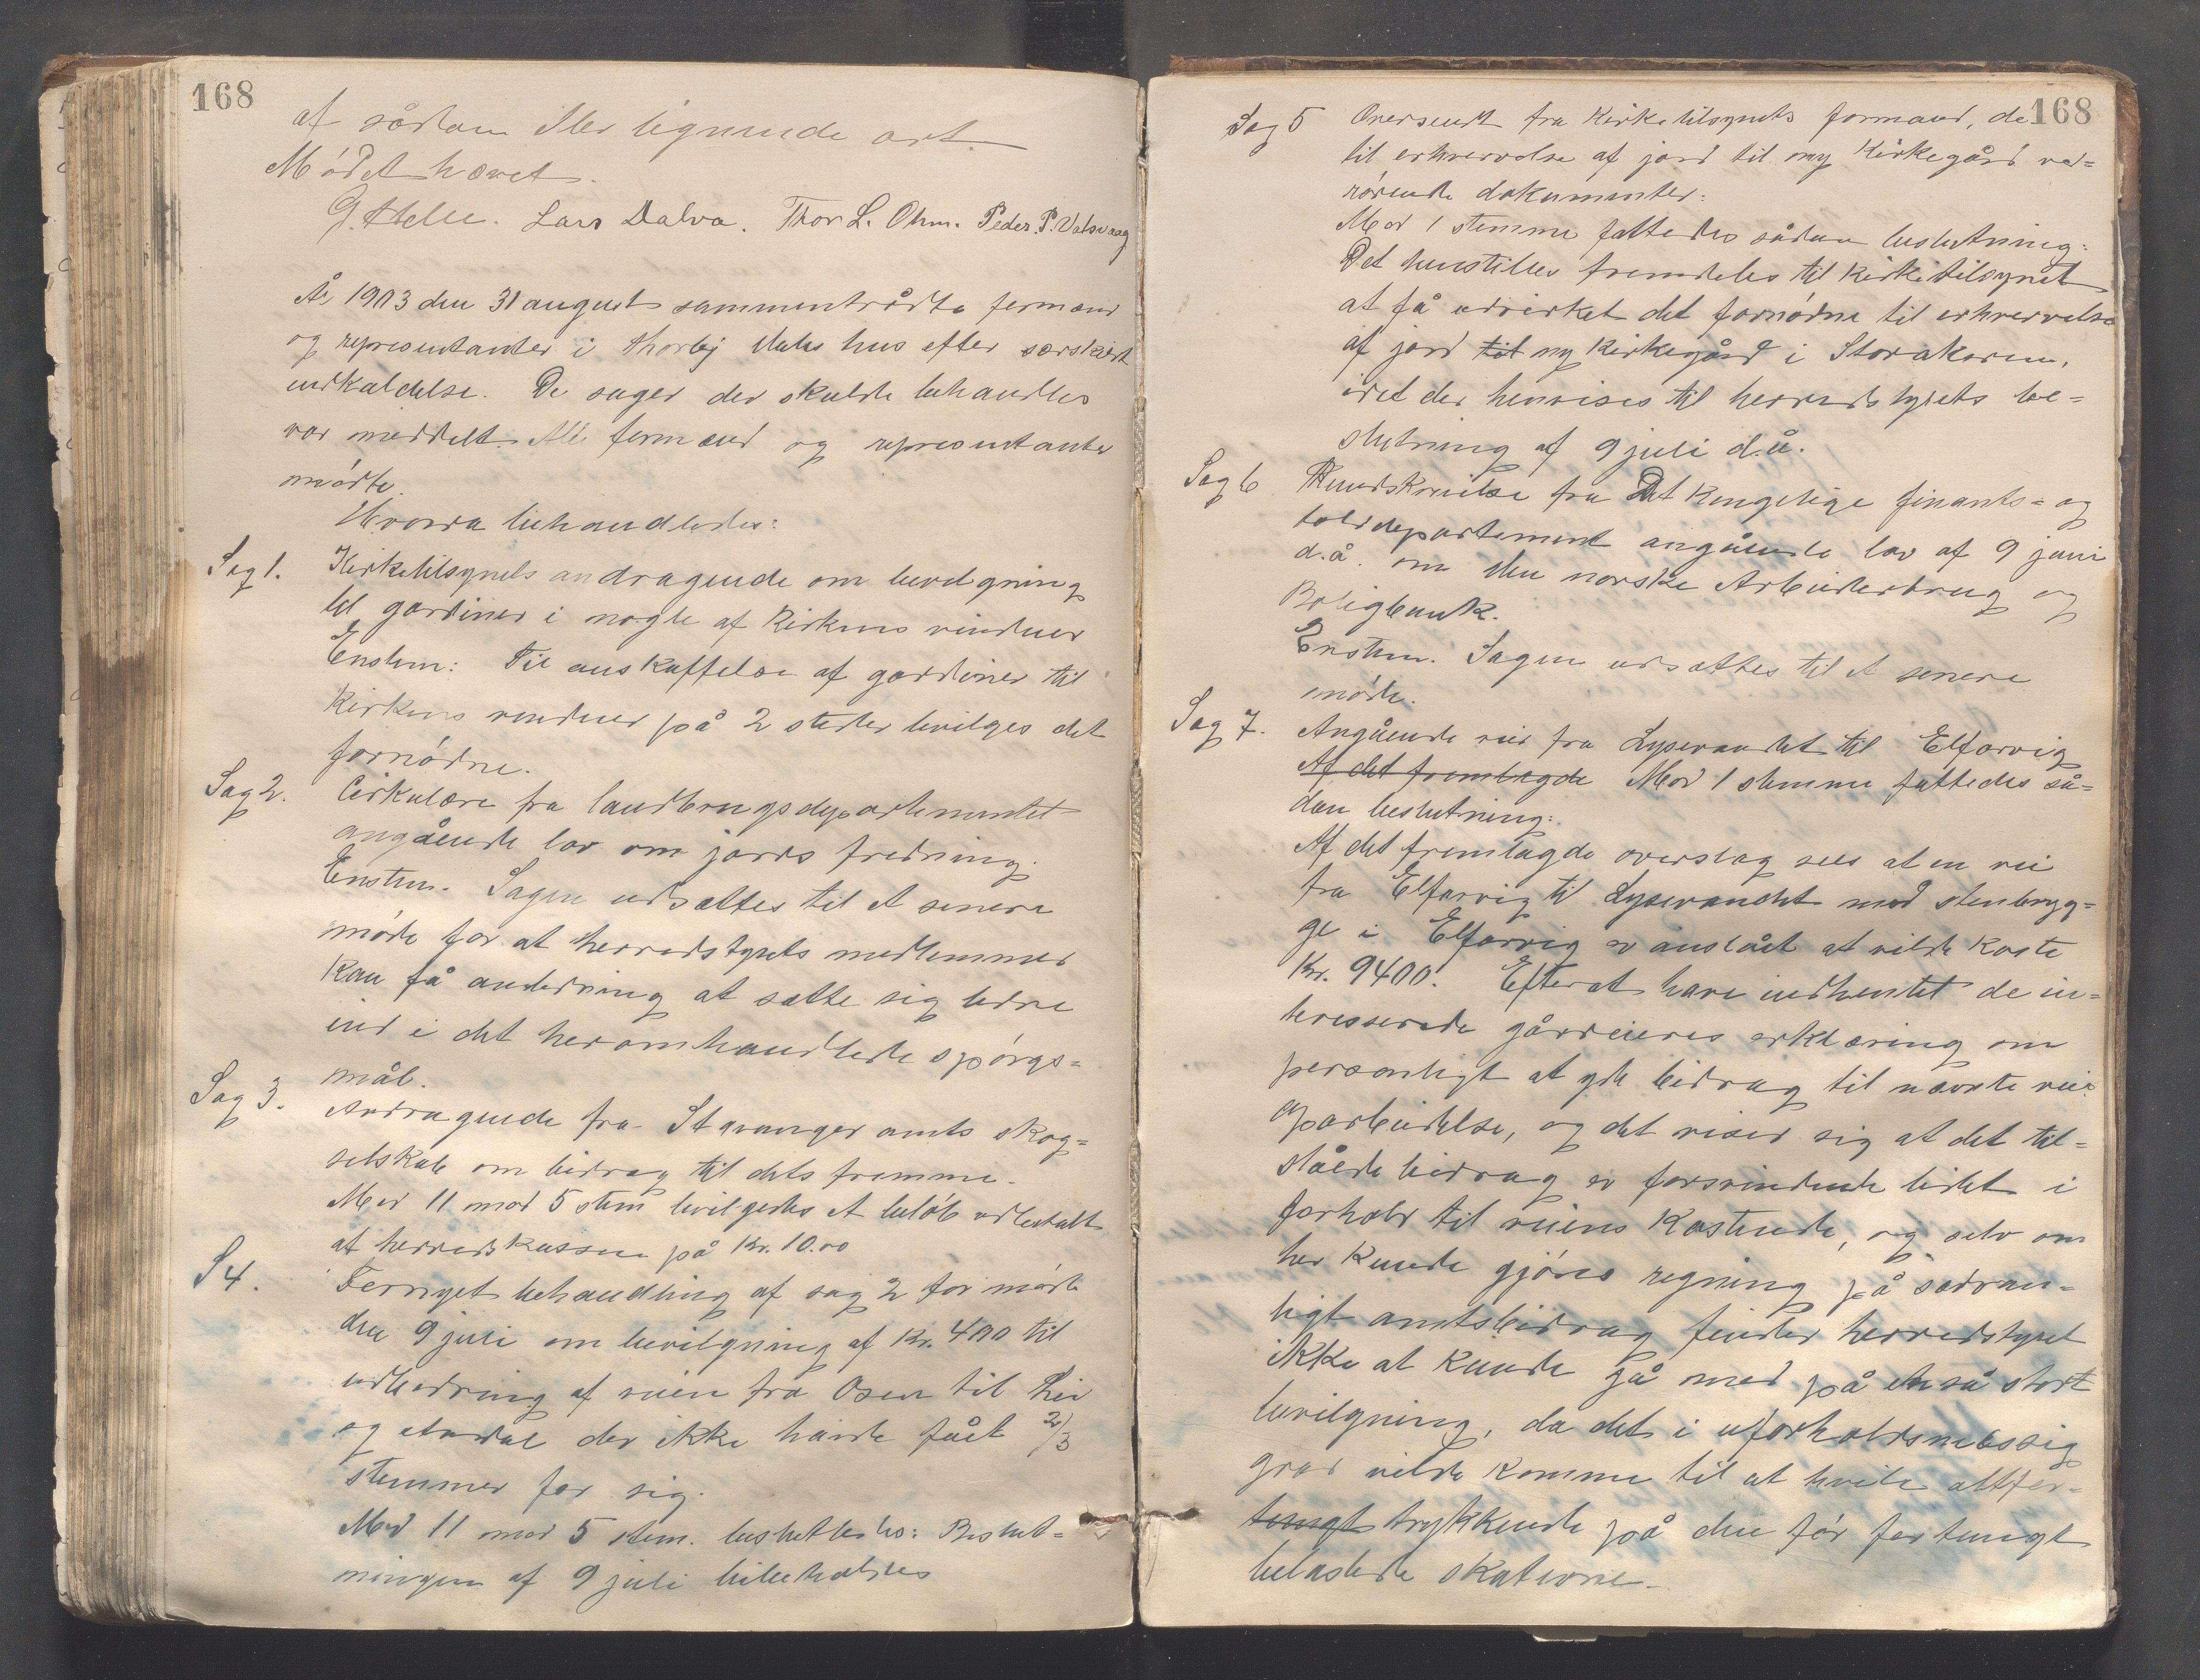 168
af sådan eller lignende art.
Mødet hævet.
G. Helle. Lars Dalva. Thor L. Ohm. Peder. P. Valsvaag
År 1903 den 31 august sammentrådte formænd
og representanter i Thorbj Meles hus efter særskilt
indkaldelse. De sager der skulde behandles
var meddelt. Alle formænd og representanter
mødte.
Hvorda behandledes:
Sag 1. Kirketilsynets andragende om bevilgning
til gardiner i nogle af Kirkens vinduer
Enstem: Til anskaffelse af gardiner til
Kirkens vinduer på 2 steder bevilges det
fornødne.
Sag 2. Cirkulære fra landbrugsdepartementet
angående lov om jords fredning.
Enstem. Sagen udsættes til et senere
møde for at herredstyrets medlemmer
kan få anledning at sætte sig bedre
ind i det heromhandlede spørgs=
mål.
Sag 3. Andragende fra Stavanger amts skog=
selskab om bidrag til dets fremme.
Med 11 mod 5 stem bevilgedes et beløb udbetalt
af herredskassen på Kr. 10.00
S 4. Fornyet behandling af sag 2 for møde
den 9 juli om bevilgning af Kr. 400 til
udbedring af veien fra Osen til Lei
og Ardal der ikke havde fået 2/3
stemmer for sig.
Med 11 mod 5 stem. besluttedes: Beslut=
ningen af 9 juli bibeholdes
168
Sag 5 Oversendt fra Kirketilsynets formand, de
til erhvervelse af jord til ny Kirkegård ved=
rørende dokumenter:
Mod 1 stemme fattedes sådan beslutning:
Det henstilles fremdeles til Kirketilsynet
at få udvirket det fornødne til erhvervelse
af jord til ny Kirkegård i Storakeren,
idet der henvises til herredstyrets be=
slutning af 9 juli d.å.
Sag 6 Rundskrivelse fra Det Kongelige finants= og
tolddepartement angående lov af 9 juni
d.å. om Den norske Arbeiderbrug og
Boligbank.
Enstem. Sagen udsættes til et senere
møde.
Sag 7. Angående vei fra Lysevandet til Elfarvig
Af det fremlagde Mod 1 stemme fattedes så=
dan beslutning:
Af det fremlagde overslag sees at en vei
fra Elfarvig til Lysevandet med stenbryg=
ge i Elfarvig er anslået at vilde koste
Kr. 9400. Efter at have indhentet de in=
teresserede gårdeieres erklæring om
personligt at yde bidrag til nævnte vei=
oparbeidelse, og det viser sig at det til=
ståede bidrag er forsvindende lidet i
forhold til veiens Kostende, og selv om
her Kunde gjøres regning på sædvan=
ligt amtsbidrag finder herredstyret
ikke at Kunde gå med på en så stort
bevilgning, da det i uforholdsmæssig
grad vilde komme til at hvile altfor=
tungt trykkende på den før for tungt
belastede skatevne.